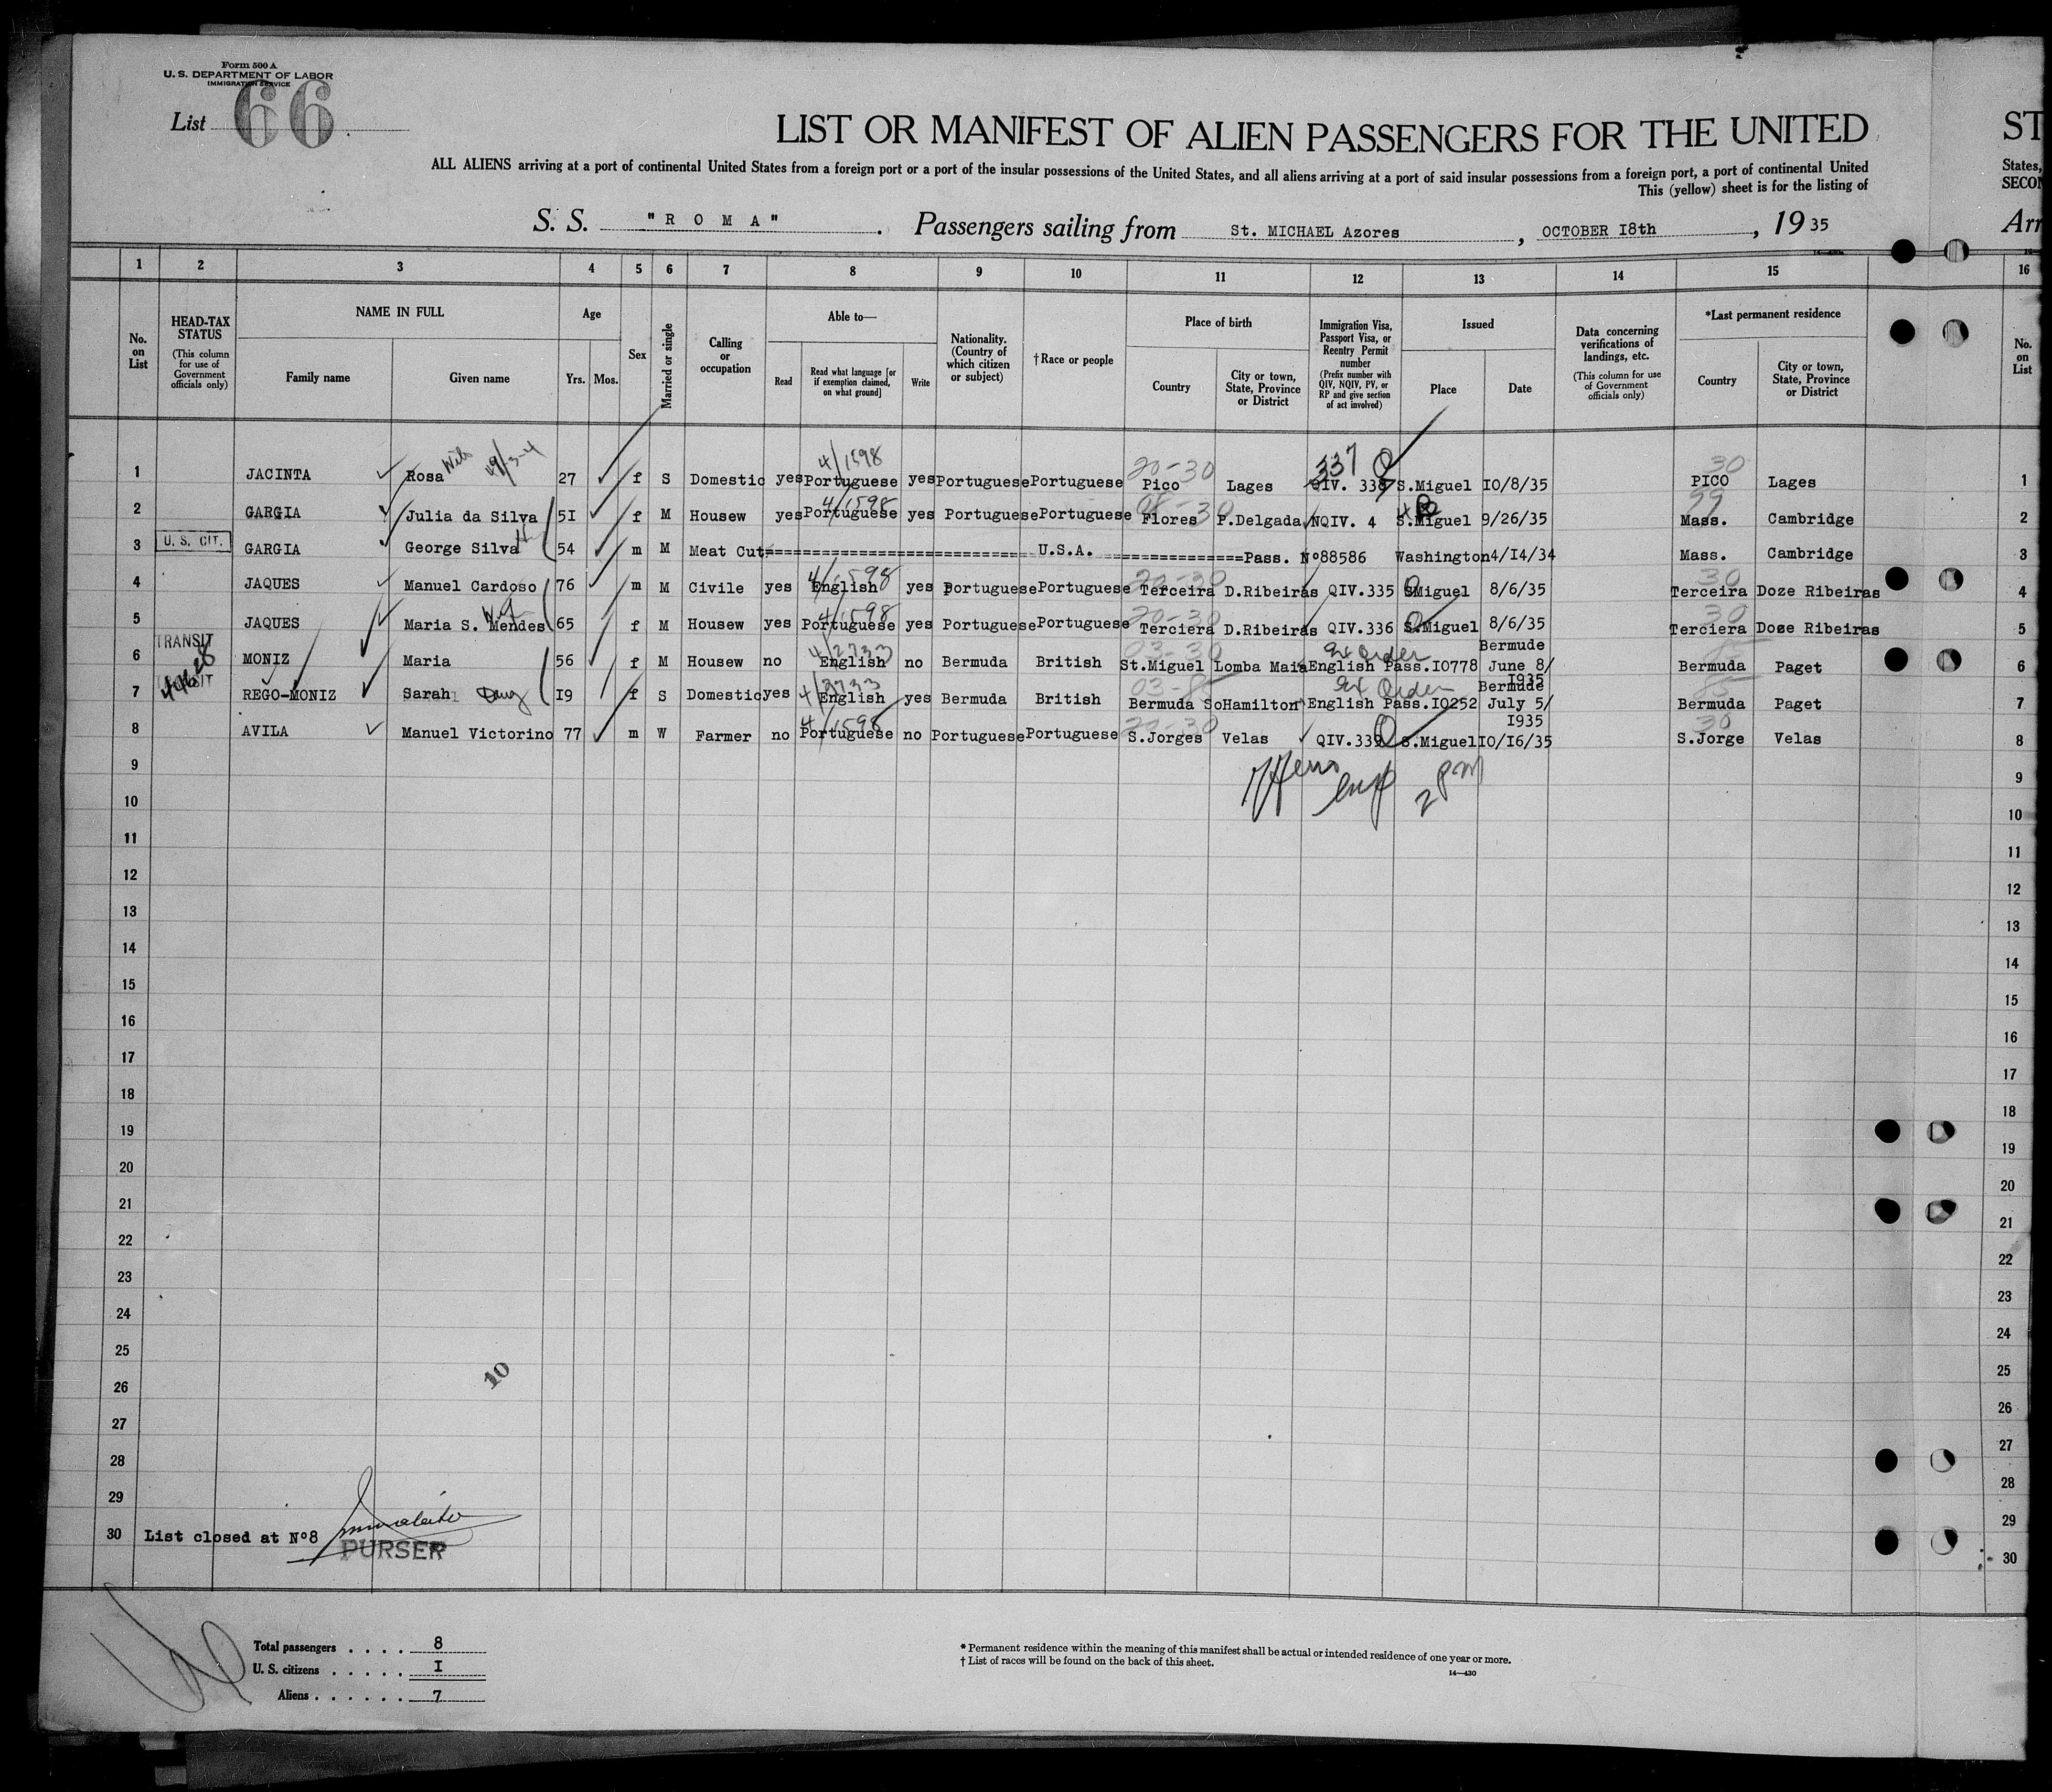 Form 500 A
U. S. DEPARTMENT OF LABOR
IMMIGRATION SERVICE
List 66
LIST OR MANIFEST OF ALIEN PASSENGERS FOR THE UNITED
ST
ALL ALIENS arriving at a port of continental United States from a foreign port or a port of the insular possessions of the United States, and all aliens arriving at a port of said insular possessions from a foreign port, a port of continental United
States,
This (yellow) sheet is for the listing of
SECON
S. S. "R O M A". Passengers sailing from St. MICHAEL Azores, OCTOBER I8th, 1935
Arr
1 2 3 4 5 6 7 8 9 10 11 12 13 14 15 16
No. on List
HEAD-TAX STATUS
(This column for use of Government officials only)
NAME IN FULL
Family name Given name
Age
Yrs. Mos.
Sex
Married or single
Calling or occupation
Able to—
Read
Read what language [or if exemption claimed, on what ground]
Write
Nationality. (Country of which citizen or subject)
†Race or people
Place of birth
Country
City or town, State, Province or District
Immigration Visa, Passport Visa, or Reentry Permit number
(Prefix number with QIV, NQIV, PV, or RP and give section of act involved)
Issued
Place Date
Data concerning verifications of landings, etc.
(This column for use of Government officials only)
*Last permanent residence
Country
City or town, State, Province or District
No. on List
4/1598 20-30 337 30
1 JACINTA Rosa 27 f S Domestic yes Portuguese yes Portuguese Portuguese Pico Lages QIV. 338 S.Miguel IO/8/35 PICO Lages 1
4/1598 08-30 99
2 GARGIA Julia da Silva 5I f M Housew yes Portuguese yes Portuguese Portuguese Flores P.Delgada NQIV. 4 S.Miguel 9/26/35 Mass. Cambridge 2
3 U. S. CIT. GARGIA George Silva 54 m M Meat Cut============================ U.S.A. ===============Pass. Nº88586 Washington 4/I4/34 Mass. Cambridge 3
4/1598 20-30 30
4 JAQUES Manuel Cardoso 76 m M Civile yes English yes Portuguese Portuguese Terceira D.Ribeiras QIV.335 SMiguel 8/6/35 Terceira Doze Ribeiras 4
4/1598 20-30 30
5 JAQUES Maria S. Mendes 65 f M Housew yes Portuguese yes Portuguese Portuguese Terciera D.Ribeiras QIV.336 S.Miguel 8/6/35 Terciera Doze Ribeiras 5
TRANSIT 4/2733 03-30 Ex Order Bermude 85
6 MONIZ Maria 56 f M Housew no English no Bermuda British St.Miguel Lomba Maia English Pass.I0778 June 8/ I935 Bermuda Paget 6
TRANSIT 4/2733 03-85 Ex Order Bermude 85
7 REGO-MONIZ Sarah Daug I9 f S Domestic yes English yes Bermuda British Bermuda SoHamilton English Pass.I0252 July 5/ I935 Bermuda Paget 7
4/1598 20-30 30
8 AVILA Manuel Victorino 77 m W Farmer no Portuguese no Portuguese Portuguese S.Jorges Velas QIV.339 S.Miguel IO/I6/35 S.Jorge Velas 8
2 PM
9 9
10 10
11 11
12 12
13 13
14 14
15 15
16 16
17 17
18 18
19 19
20 20
21 21
22 22
23 23
24 24
25 25
10
26 26
27 27
28 28
29 29
30 List closed at Nº8 30
PURSER
Total passengers . . . . 8
U. S. citizens . . . . . I
Aliens . . . . . . 7
* Permanent residence within the meaning of this manifest shall be actual or intended residence of one year or more.
† List of races will be found on the back of this sheet.
14—430